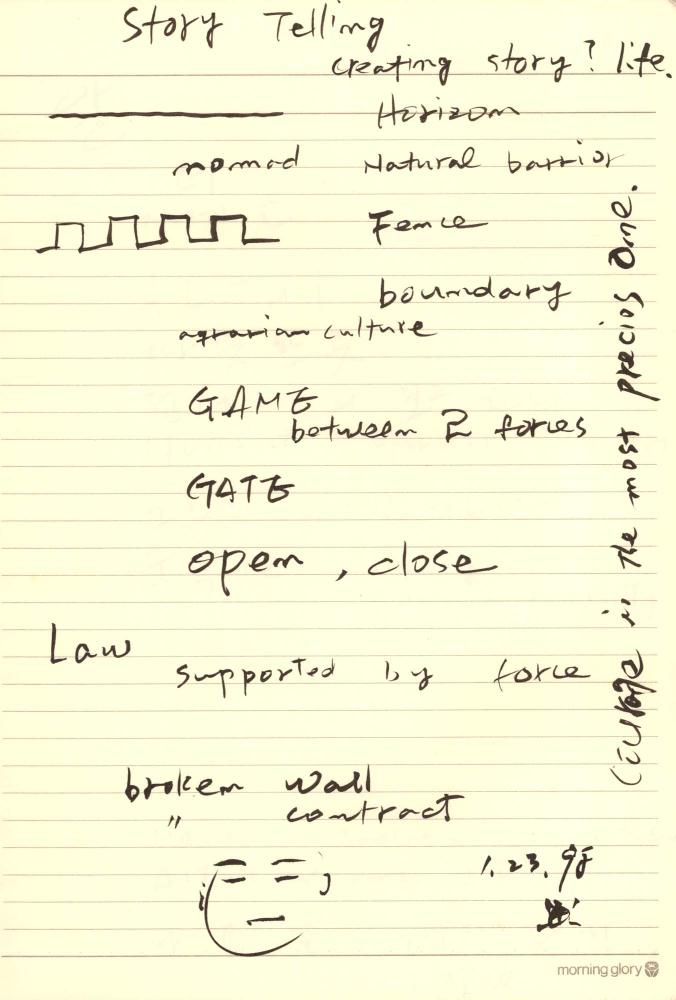 Story Telling
creating story? life.
Horizon
nomad Natural barrior
Fence
boundary
agrarian culture
GAME
between 2 forces
GATE
open, close
Law
supported by force
broken wall
" contract
1. 23. 98
is the most precios one.
morning glory